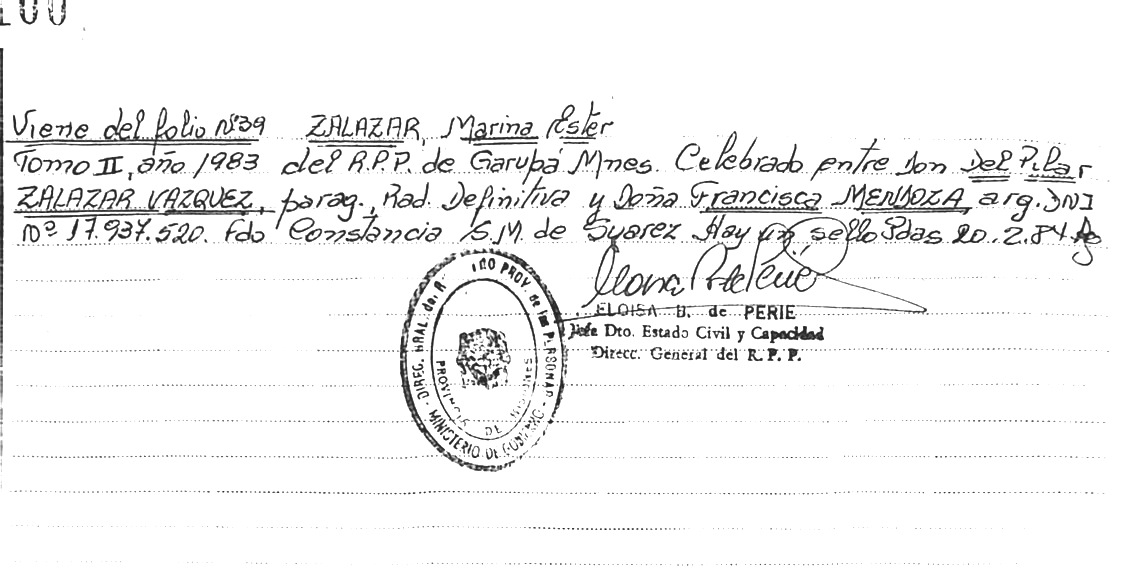 100
Viene del folio Nº39 ZALAZAR, Marina Ester
Tomo II, año 1983 del R.P.P. de Garupá Mnes. Celebrado entre Don Del Pilar
ZALAZAR VAZQUEZ, parag., Rad. Definitiva y Doña Francisca MENDOZA, arg. DNI
Nº 17.937.520. Fdo Constancia S.M. de Suarez Hay un sello Pdas 20.2.84
ELOISA B. de PERIE
Jefa Dto. Estado Civil y Capacidad
Direcc. General del R. P. P.
DIREG. GRAL. del R PROV. de las PERSONAS
PROVINCIA DE MISIONES
MINISTERIO DE GOBIERNO